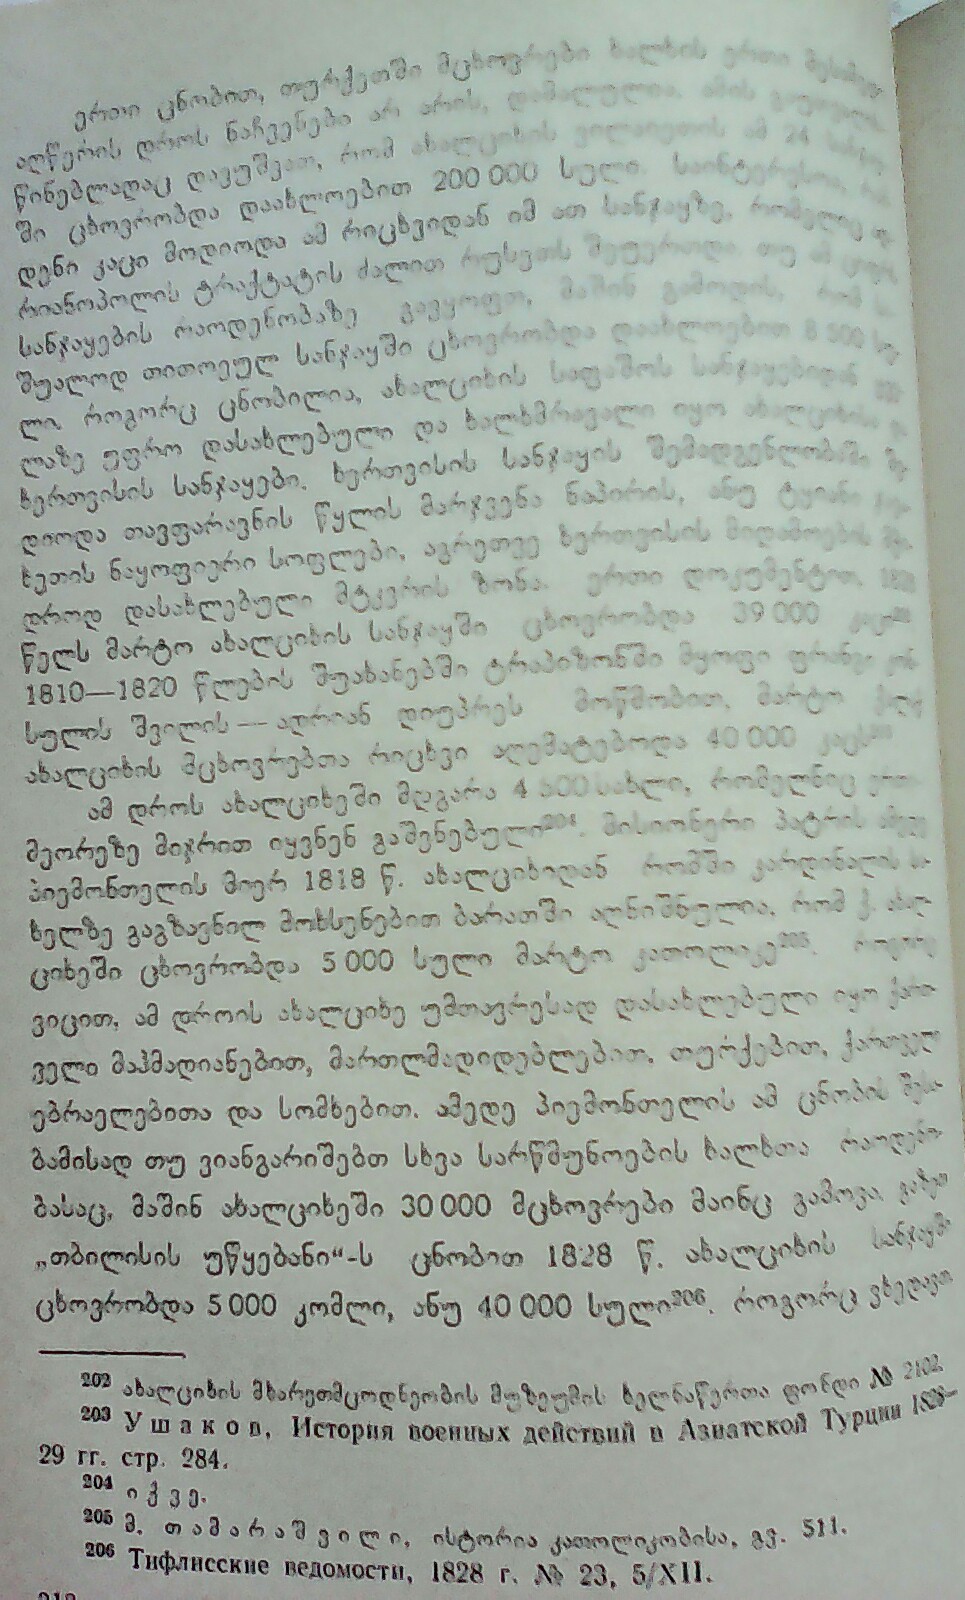 ერთი ცნობით, თურქეთში მცხოვრები ხალხის ერთი
აღწერის დროს ნაჩვენები არ არის, დამალულია. ამის
წინებლადაც დავუშვათ, რომ ახალციხის ვილაიეთის ამ 24
ში ცხოვრობდა დაახლოებით 200 000 სული. საინტერესოა,
დენი კაცი მოდიოდა ამ რიცხვიდან იმ ათ სანჯაყზე, რომელიც
რიანოპოლის ტრაქტატის ძალით რუსეთს შეუერთდა. თუ ამ
სანჯაყების რაოდენობაზე გავყოფთ, მაშინ გამოდის, რომ
შუალოდ თითოეულ სანჯაყში ცხოვრობდა დაახლოებით 8 500
ლი. როგორც ცნობილია, ახალციხის საფაშოს სანჯაყებიდან
ლაზე უფრო დასახლებული და ხალხმრავალი იყო ახალციხისა
ხერთვისის სანჯაყები. ხერთვისის სანჯაყის შემადგენლობაში
დიოდა თავფარავნის წყლის მარჯვენა ნაპირის, ანუ ტყიანი
ხეთის ნაყოფიერი სოფლები, აგრეთვე ხერთვისის მიდამოების
დროდ დასახლებული მტკვრის ზონა. ერთი დოკუმენტით,
წელს მარტო ახალციხის სანჯაყში ცხოვრობდა 39 000
1810—1820 წლების შუახანებში ტრაპიზონში მყოფი
სულის შვილის — ადრიან დიუპრეს მოწმობით, მარტო
ახალციხის მცხოვრებთა რიცხვი აღემატებოდა 40 000 კაცს
ამ დროს ახალციხეში მდგარა 4 500 სახლი, რომელნიც
მეორეზე მიჯრით იყვნენ გაშენებული²⁰⁴. მისიონერი პატრის
პიემონთელის მიერ 1818 წ. ახალციხიდან რომში კარდინალის
ხელზე გაგზავნილ მოხსენებით ბარათში აღნიშნულია, რომ ქ. ახალ-
ციხეში ცხოვრობდა 5 000 სული მარტო კათოლიკე²⁰⁵. როგორც
ვიცით, ამ დროის ახალციხე უმთავრესად დასახლებული იყო ქართ-
ველი მაჰმადიანებით, მართლმადიდებლებით, თურქებით, ქართველ
ებრაელებითა და სომხებით. ამედე პიემონთელის ამ ცნობის შესა-
ბამისად თუ ვიანგარიშებთ სხვა სარწმუნოების ხალხთა რაოდენო-
ბასაც, მაშინ ახალციხეში 30 000 მცხოვრები მაინც გამოვა. გაზეთ
„თბილისის უწყებანი“-ს ცნობით 1828 წ. ახალციხის სანჯაყში
ცხოვრობდა 5 000 კომლი, ანუ 40 000 სული²⁰⁶. როგორც ვხედავთ
²⁰² ახალციხის მხარეთმცოდნეობის მუზეუმის ხელნაწერთა ფონდი № 2102.
²⁰³ Ушаков, История военных действий в Азиатской Турции 1828—
29 гг. стр. 284.
²⁰⁴ იქვე.
²⁰⁵ მ. თამარაშვილი, ისტორია კათოლიკობისა, გვ. 511.
²⁰⁶ Тифлисские ведомости, 1828 г. № 23, 5/XII.